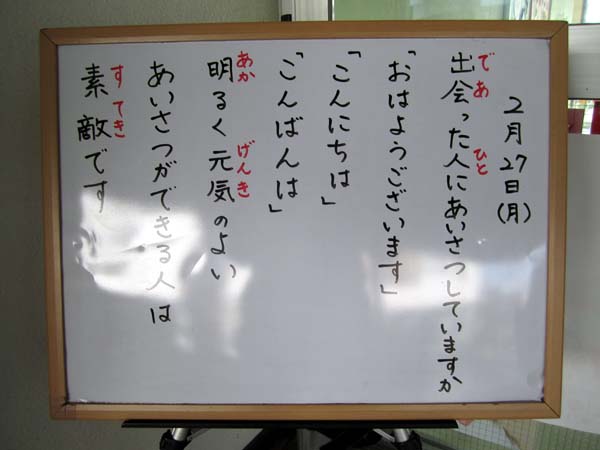 2月27日(月)
出会った人にあいさつしていますか
であ ひと
「おはようございます」
「こんにちは」
「こんばんは」
明るく元気のよい
あか げんき
あいさつができる人は
素敵です
すてき